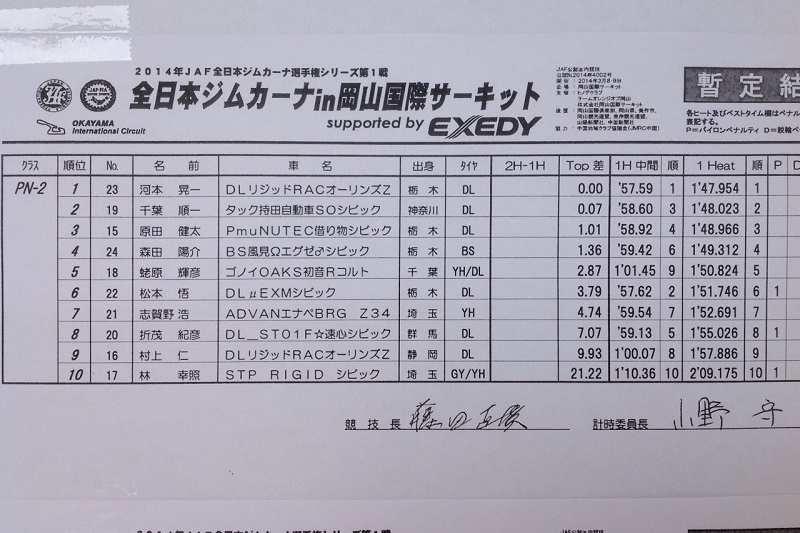 2014年JAF全日本ジムカーナ選手権シリーズ第1戦
全日本ジムカーナin岡山国際サーキット
supported by EXEDY
OKAYAMA
International Circuit
JAF公認国内競技
公認No.2014年4002号
2014年3月8・9日
岡山国際サーキット
暫定結
各ヒート及びベストタイム欄はペナル
表記する。
P=パイロンペナルティ D=脱輪ペ
クラス 順位 No. 名前 車名 出身 タイヤ 2H-1H Top差 1H中間 順 1 Heat 順 P D
PN-2 1 23 河本 晃一 DLリジッドRACオーリンズZ 栃木 DL 0.00 '57.59 1 1'47.954 1
2 19 千葉 順一 タック持田自動車SOシビック 神奈川 DL 0.07 '58.60 3 1'48.023 2
3 15 原田 健太 PmuNUTEC借り物シビック 栃木 DL 1.01 '58.92 4 1'48.966 3
4 24 森田 陽介 BS風見Ωエグゼ♂シビック 栃木 BS 1.36 '59.42 6 1'49.312 4
5 18 蛯原 輝彦 ゴノイOAKS初音Rコルト 千葉 YH/DL 2.87 1'01.45 9 1'50.824 5
6 22 松本 悟 DLμEXMシビック 栃木 DL 3.79 '57.62 2 1'51.746 6 1
7 21 志賀野 浩 ADVANエナペBRG Z34 埼玉 YH 4.74 '59.54 7 1'52.691 7
8 20 折茂 紀彦 DL_ST01F☆速心シビック 群馬 DL 7.07 '59.13 5 1'55.026 8 1
9 16 村上 仁 DLリジッドRACオーリンズZ 静岡 DL 9.93 1'00.07 8 1'57.886 9
10 17 林 幸照 STP RIGID シビック 埼玉 GY/YH 21.22 1'10.36 10 2'09.175 10 1
競技長
計時委員長 小野 守